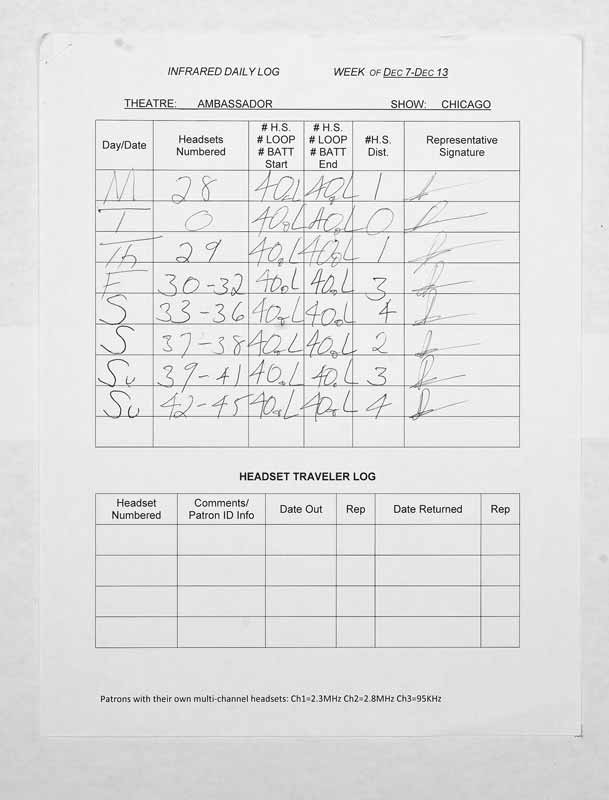 INFRARED DAILY LOG WEEK OF DEC 7-DEC 13
THEATRE: AMBASSADOR SHOW: CHICAGO
Day/Date Headsets Numbered # H.S. # LOOP # BATT Start # H.S. # LOOP # BATT End #H.S. Dist. Representative Signature
M 28 40 L 40 L 1
T 0 40 L 40 L 0
Th 29 40 L 40 L 1
F 30-32 40 L 40 L 3
S 33-36 40 L 40 L 4
S 37-38 40 L 40 L 2
Su 39-41 40 L 40 L 3
Su 42-45 40 L 40 L 4
HEADSET TRAVELER LOG
Headset Numbered Comments/ Patron ID Info Date Out Rep Date Returned Rep
Patrons with their own multi-channel headsets: Ch1=2.3MHz Ch2=2.8MHz Ch3=95KHz